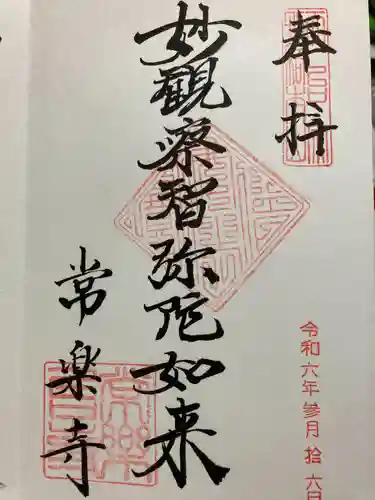 奉拝
妙観察智弥陀如来
常楽寺
令和六年参月拾六日